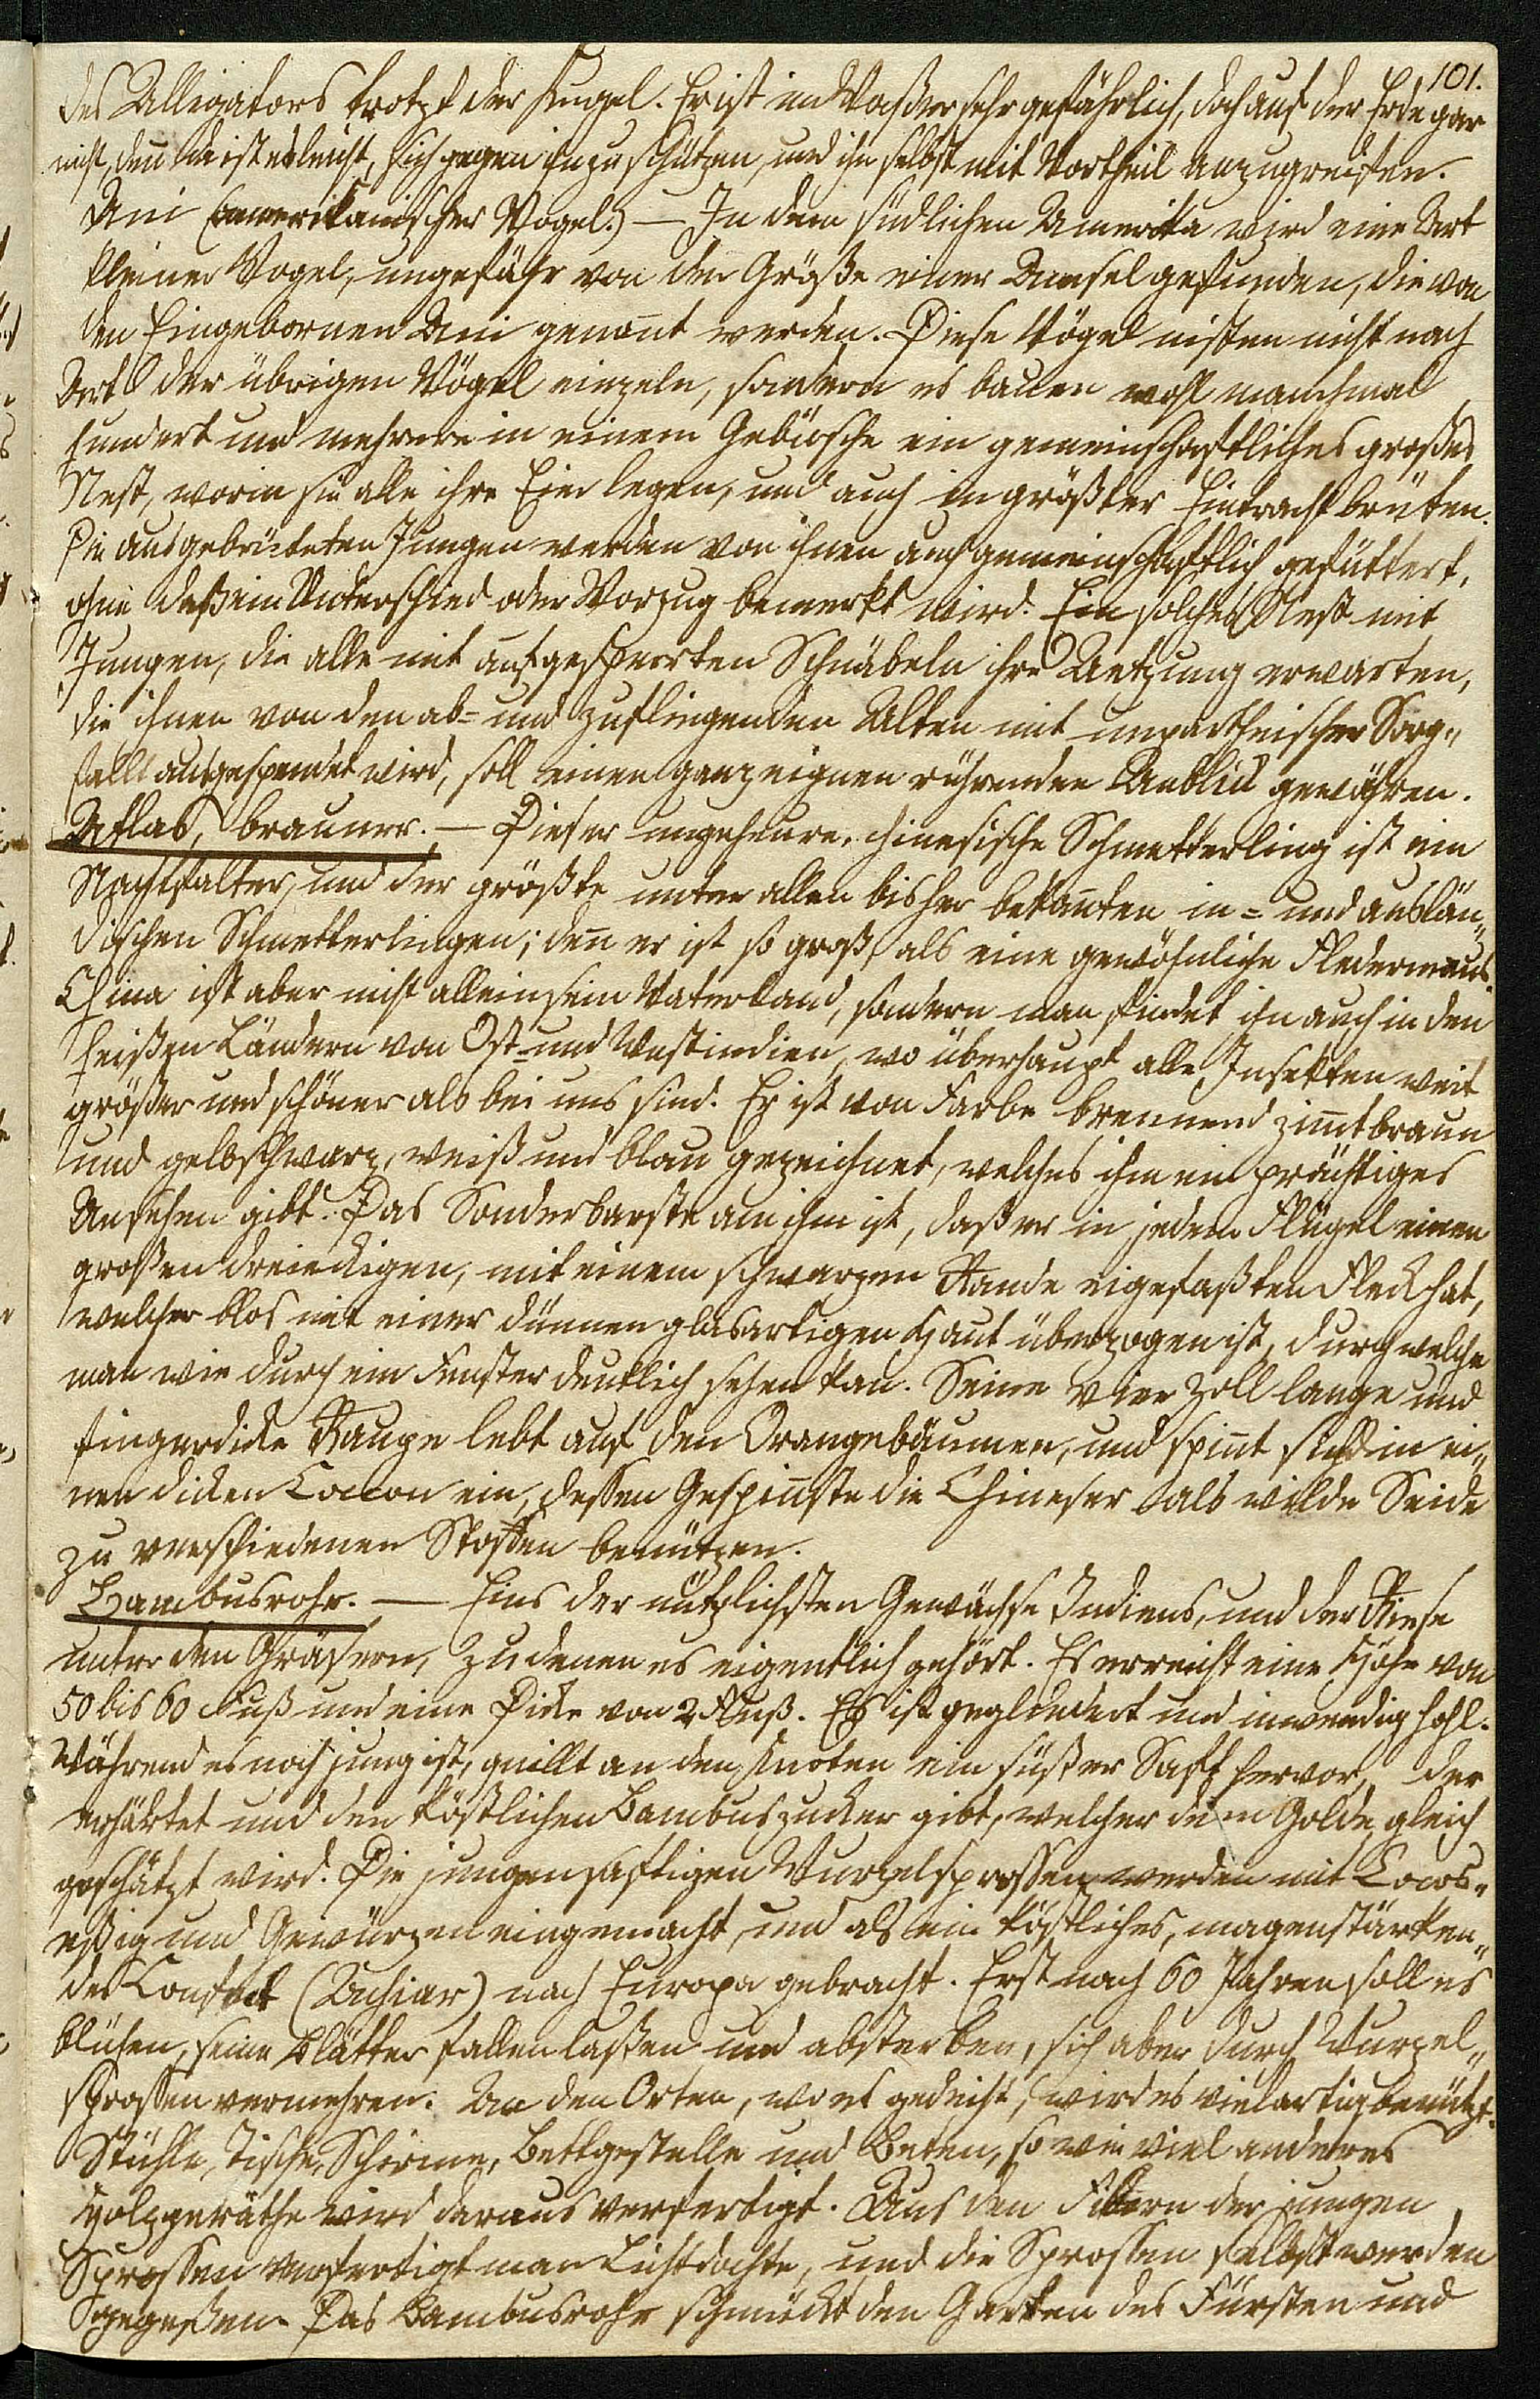 101.
des Alligators trotzt der Kugel. Er ist im Waßer sehr gefährlich, doch auf der Erde gar
nicht, deñ da ist es leicht, sich gegen ihn zu schützen, und ihn selbst mit Vortheil anzugreifen.
Ani (amerikanischer Vogel.) — In dem südlichen Amerika wird eine Art
kleiner Vögel, ungefähr von der Größe einer Amsel gefunden, die von
den Eingebornen Ani genañt werden. Diese Vögel nisten nicht nach
Art der übrigen Vögel einzeln, sondern es bauen wohl manchmal
hundert und mehrere in einem Gebüsche ein gemeinschaftliches großes
Nest, worin sie alle ihre Eier legen, und auch in größter Eintracht brüten.
Die ausgebrüteten Jungen werden von ihnen auch gemeinschaftlich gefüttert,
ohne daß ein Unterschied oder Vorzug bemerkt wird. Ein solches Nest mit
Jungen, die alle mit aufgesperrten Schnäbeln ihre Aetzung erwarten,
die ihnen von den ab= und zufliegenden Alten mit unpartheiischer Sorg„
fallt ausgespendet wird, soll einen ganz eignen rührenden Anblick gewähren.
Atlas, brauner. — Dieser ungeheure, chinesische Schmetterling ist ein
Nachtfalter, und der größte unter allen bisher bekañten in= und auslän„
dischen Schmetterlingen; deñ er ist so groß, als eine gewöhnliche Fledermaus.
China ist aber nicht allein sein Vaterland, sondern man findet ihn auch in den
heißen Ländern von Ost= und Westindien, wo überhaupt alle Insekten weit
größer und schöner als bei uns sind. Er ist von Farbe brennend zim̃tbraun
und gelb schwarz, weiß und blau gezeichnet, welches ihm ein prächtiges
Ansehen gibt. Das Sonderbarste an ihm ist, daß er in jedem Flügel einen
großen dreieckigen, mit einem schwarzen Rande eigefaßten Fleck hat,
welcher blos mit einer dünnen glasartigen Haut überzogen ist, durch welche
man wie durch ein Fenster deutlich sehen kan. Seine vier Zoll lange und
fingerdicke Raupe lebt auf den Orangebäumen, und spiñt sich in ei„
nen dicken Coccon ein, deßen Gespiñste die Chineser als wilde Seide
zu verschiedenen Stoffen benützen.
Bambusrohr. — Eins der nützlichsten Gewächse Indiens, und der Riese
unter den Gräsern, zu denen es eigentlich gehört. Es erreicht eine Höhe von
50 bis 60 Fuß und eine Dicke von 2 Fuß. Es ist gegliedert und inwendig hohl.
Während es noch jung ist, quillt an den Knoten ein süßer Saft hervor, der
erhärtet und den köstlichen Bambuszucker gibt, welcher dem Golde gleich
geschätzt wird. Die jungen saftigen Wurzelsproßen werden mit Cocos„
eßig und Gewürzen eingemacht, und als ein köstliches, magenstärken„
des Confect (Achiar) nach Europa gebracht. Erst nach 60 Jahren soll es
blühen, seine Blätter fallen laßen und absterben, sich aber durch Wurzel„
sproßen vermehren. An den Orten, wo es gedeiht, wird es vielartig benützt.
Stühle, Tische, Schirme, Bettgestelle und Beten, so wie viel anderes
Holzgeräthe wird daraus verfertigt. Aus den Fibern der jungen
Sproßen verfertigt man Lichtdochte, und die Sproßen selbst werden
gegeßen. Das Bambusrohr schmückt den Garten des Fürsten und